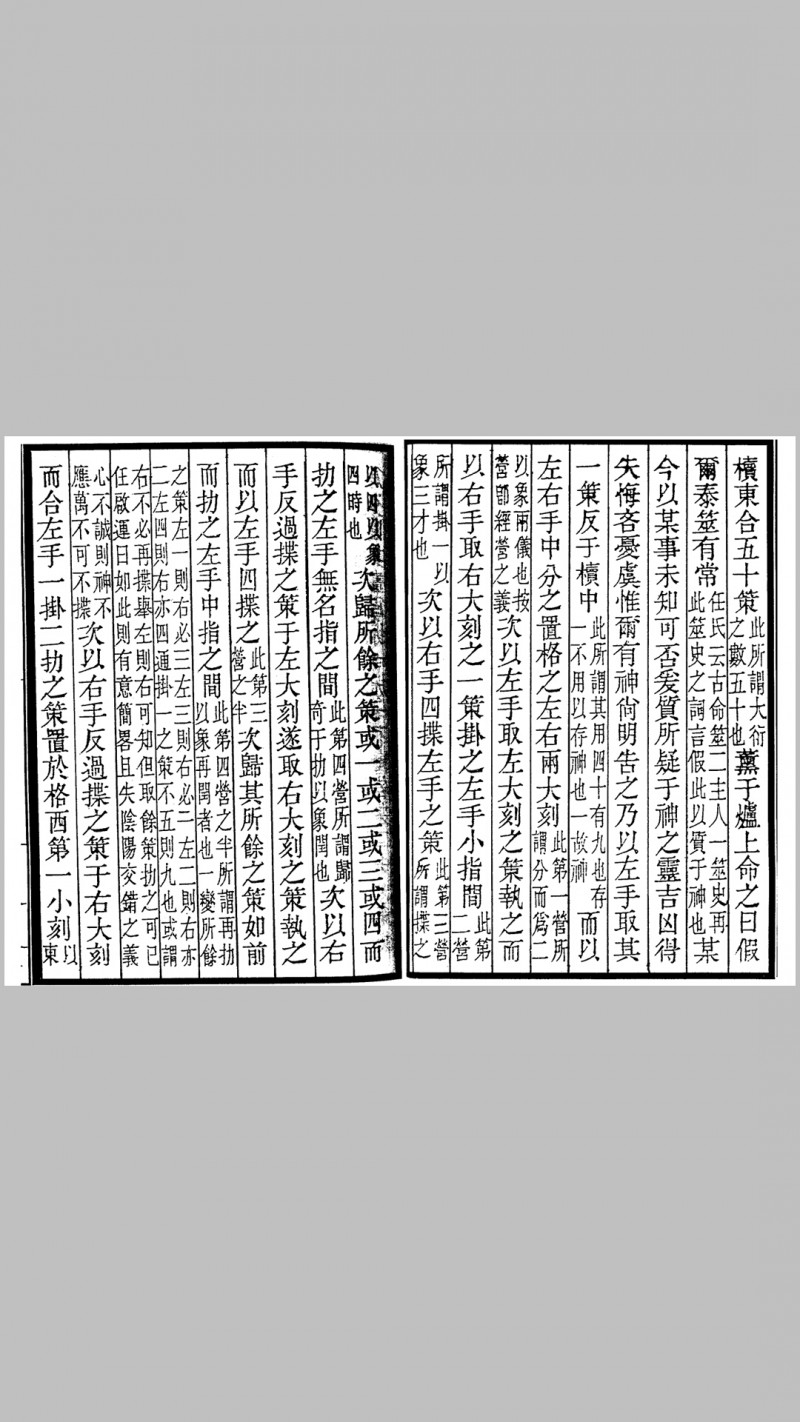 櫝東合五十策此所謂大衍
之數五十也薰于爐上命之曰假
爾泰筮有常任氏云古命筮二主人一筮史再
此筮史之詞言假此以質于神也某
今以某事未知可否爰質所疑于神之靈吉凶得
失悔吝憂虞惟爾有神尚明告之乃以左手取其
一策反于櫝中此所謂其用四十有九也存
一不用以存神也一故神而以
左右手中分之置格之左右兩大刻此第一營所
謂分而爲二
以象兩儀也按
營即經營之義次以左手取左大刻之策執之而
以右手取右大刻之一策掛之左手小指間此第
二營
所謂掛一以
象三才也次以右手四揲左手之策此第三營
所謂揲之
以四以象
四時也次歸所餘之策或一或二或三或四而
扐之左手無名指之間此第四營所謂歸
奇于扐以象閏也次以右
手反過揲之策于左大刻遂取右大刻之策執之
而以左手四揲之此第三
營之半次歸其所餘之策如前
而扐之左手中指之間此第四營之半所謂再扐
以象再閏者也一變所餘
之策左一則右必三左三則右必二左二則右亦
二左四則右亦四通掛一之策不五則九也或謂
右不必再揲舉左則右可知但取餘策扐之可已
任啟運曰如此則有意簡畧且失陰陽交錯之義
心不誠則神不
應萬不可不揲次以右手反過揲之策于右大刻
而合左手一掛二扐之策置於格西第一小刻以
東